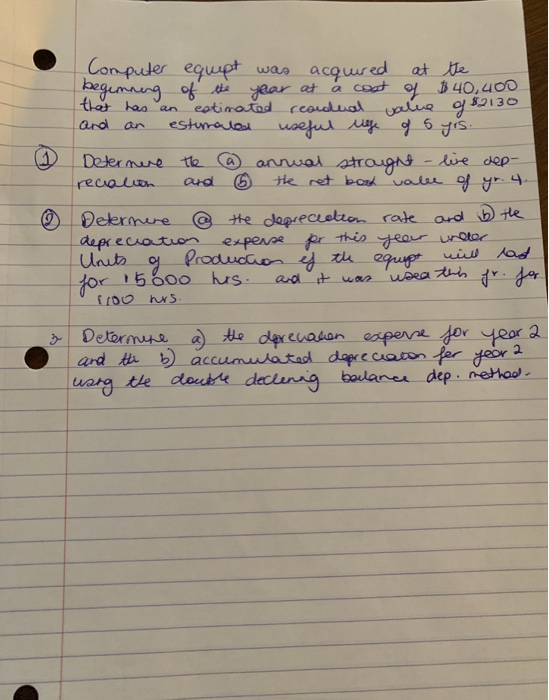 Computer equipt was acquired at the
beginning of the year at a cost of $40,400
that has an estimated residual value of $2130
and an estimated useful life of 5 yrs.
① Determine the ⓐ annual straight-line dep-
reciation and ⓑ the net book value of yr. 4.
② Determine ⓐ the depreciation rate and ⓑ the
depreciation expense for this year under
Units of Production if the equipt will last
for 15000 hrs. and it was used this yr. for
1,100 hrs.
3 Determine a) the depreciation expense for year 2
and the b) accumulated depreciation for year 2
using the double declining balance dep. method.